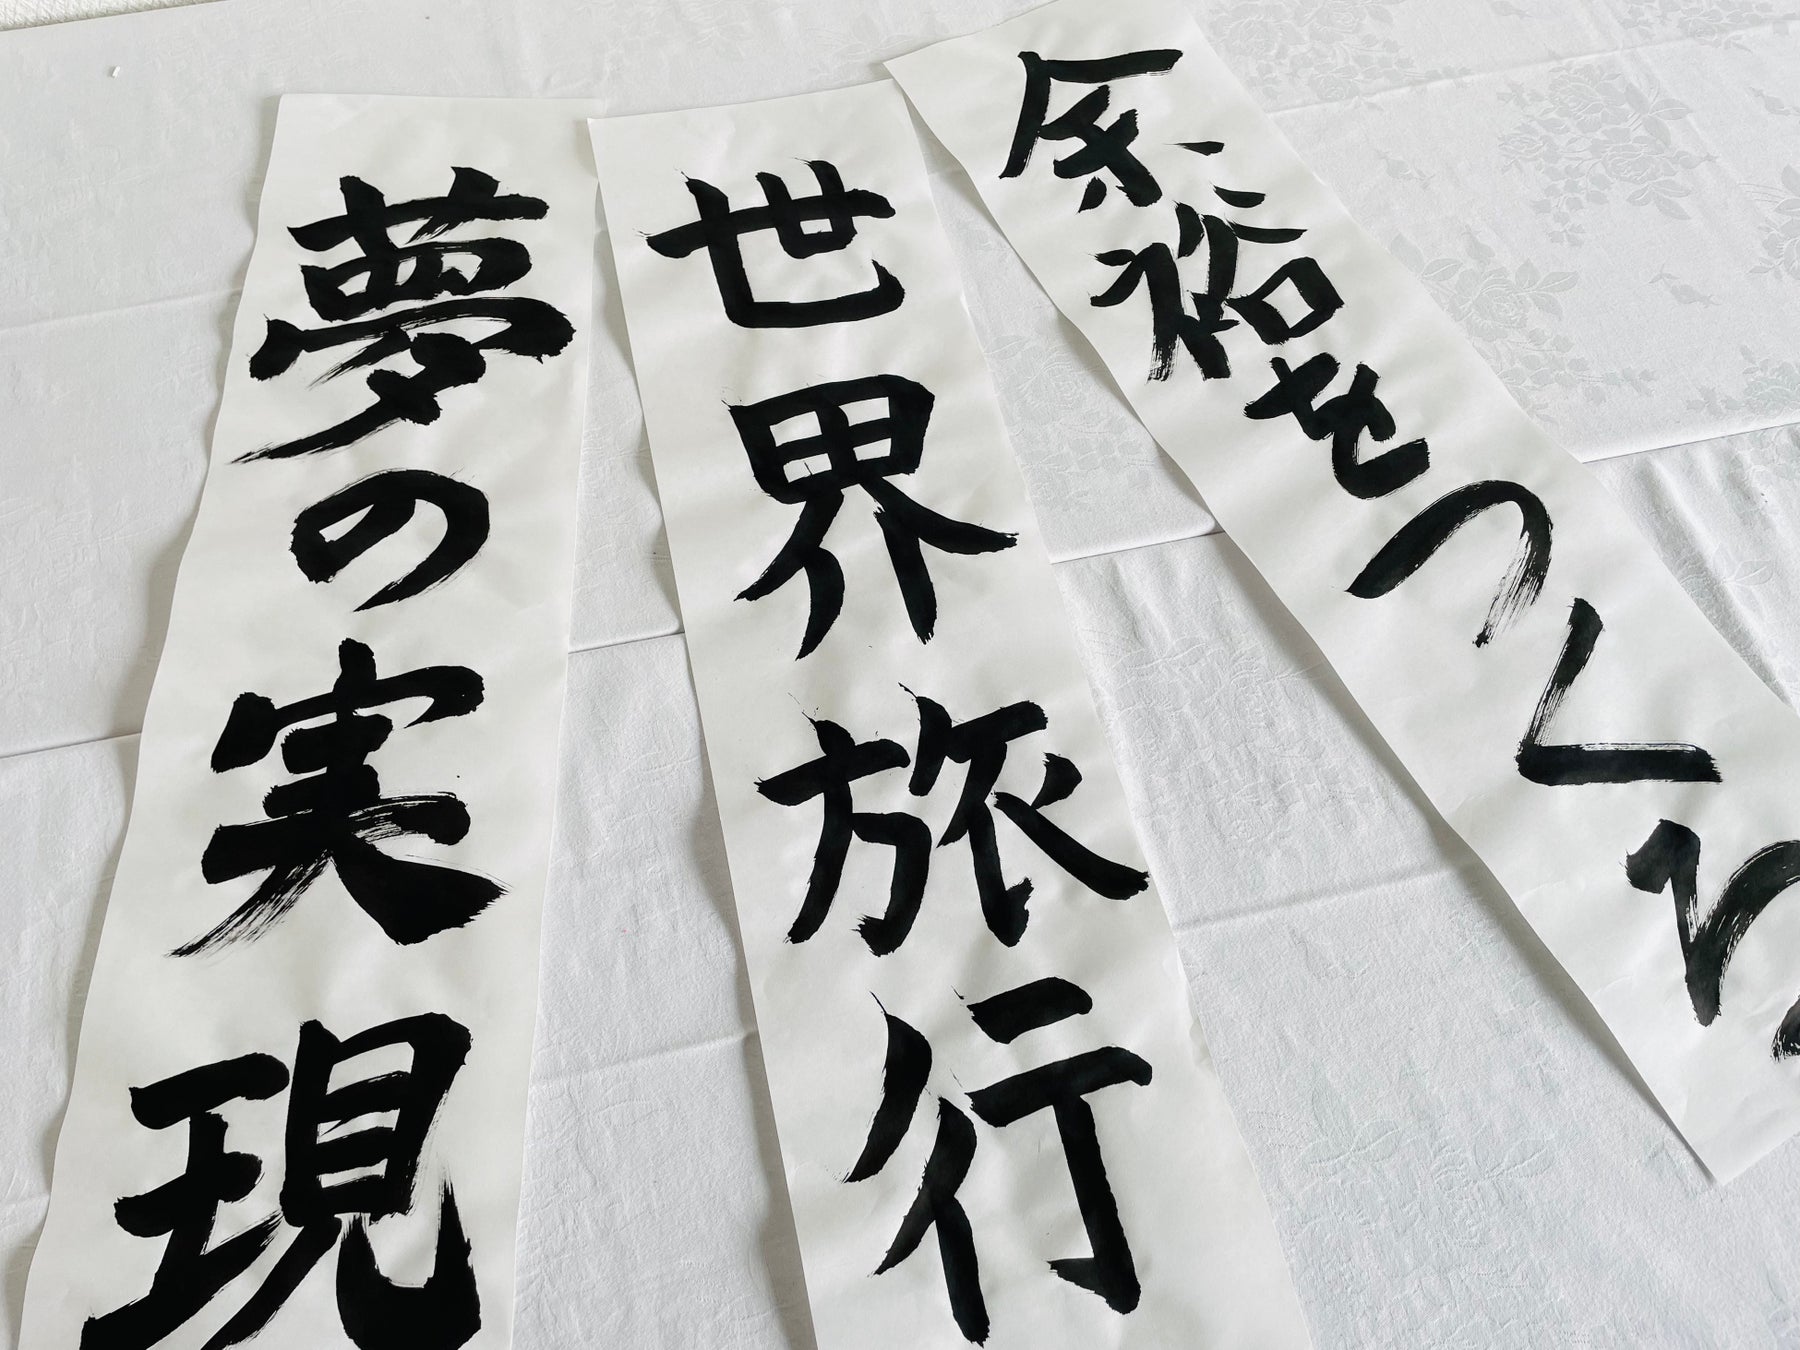 余裕をつくる
世界旅行
夢の実現